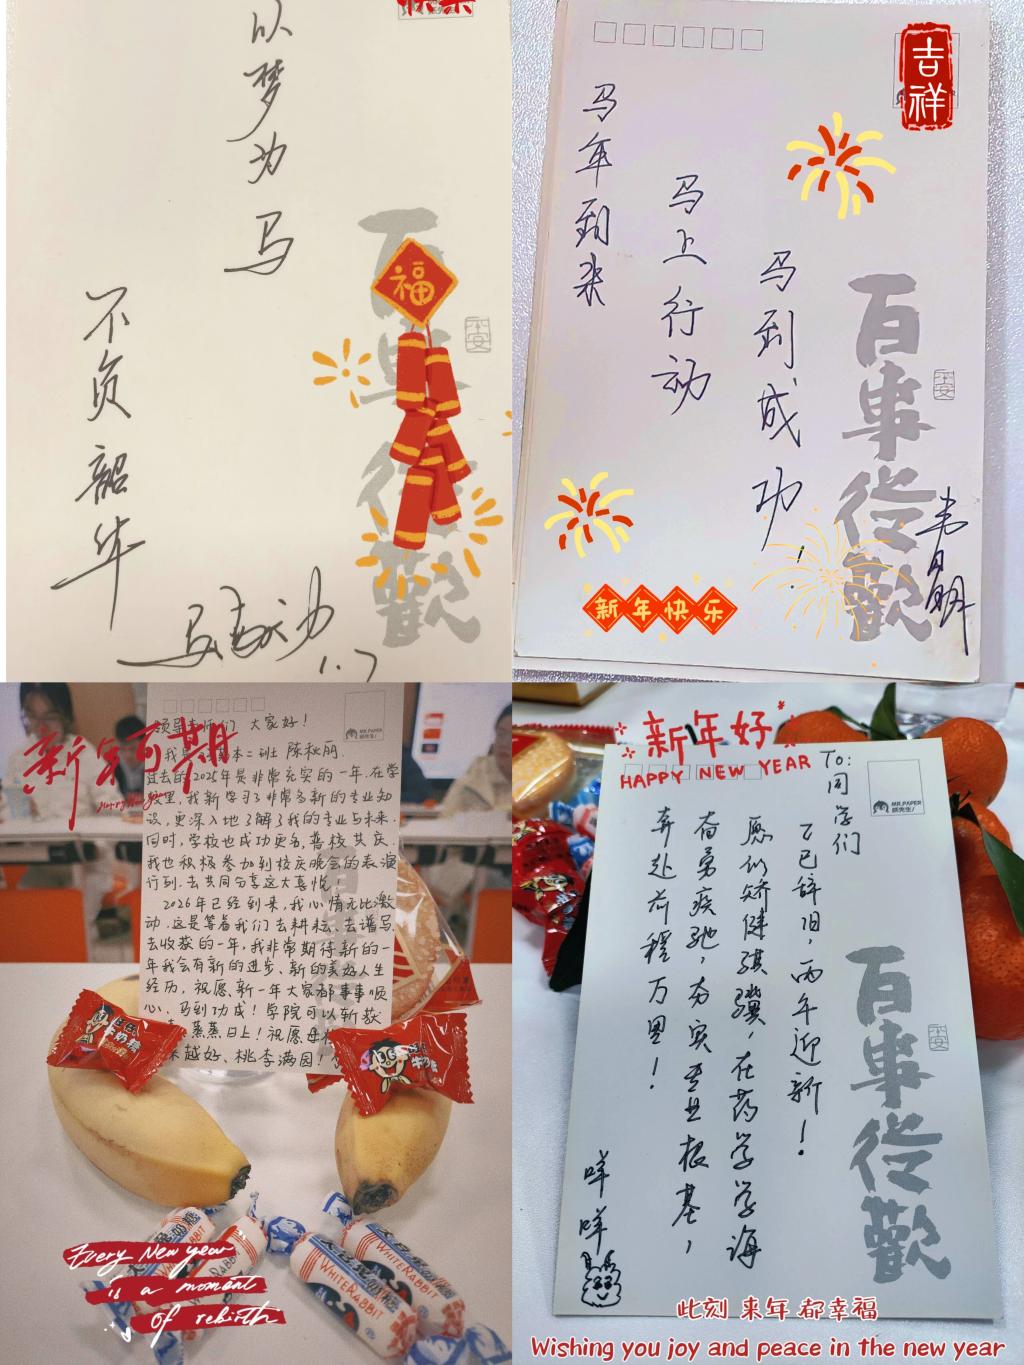 快乐
以梦为马
不负韶华
福
平安
1.7
吉祥
马年到来
马上行动
马到成功
百事从欢
平安
韦日明
新年快乐
新年可期
Happy New Year
领导老师们 大家好！
陈秋丽
过去的2025年是非常充实的一年。在学
校里，我新学习了非常多新的专业知
识，更深入地了解了我的专业与未来。
同时，学校也成功更名，喜校共庆，
我也积极参加到校庆晚会的表演
行列，去共同分享这大喜悦！
2026年已经到来，我心情无比激
动，这是等着我们去耕耘、去谱写、
去收获的一年，我非常期待新的一
年我会有新的进步、新的美好人生
经历，祝愿新一年大家都事事顺
心、马到功成！学院可以斩
蒸蒸日上！祝愿母校
越来越好、桃李满园！
MR.PAPER
牛奶糖
大白兔奶糖
WHITE RABBIT
WHITE RABBIT
Every New year
is a moment
of rebirth
新年好
HAPPY NEW YEAR
MR.PAPER
纸先生
To:同学们
乙巳辞旧，丙午迎新！
愿你们矫健骐骥，在药学学海
奋勇疾驰，夯实专业根基，
奔赴前程万里！
百事從歡
平安
咩咩
此刻 来年 都幸福
Wishing you joy and peace in the new year